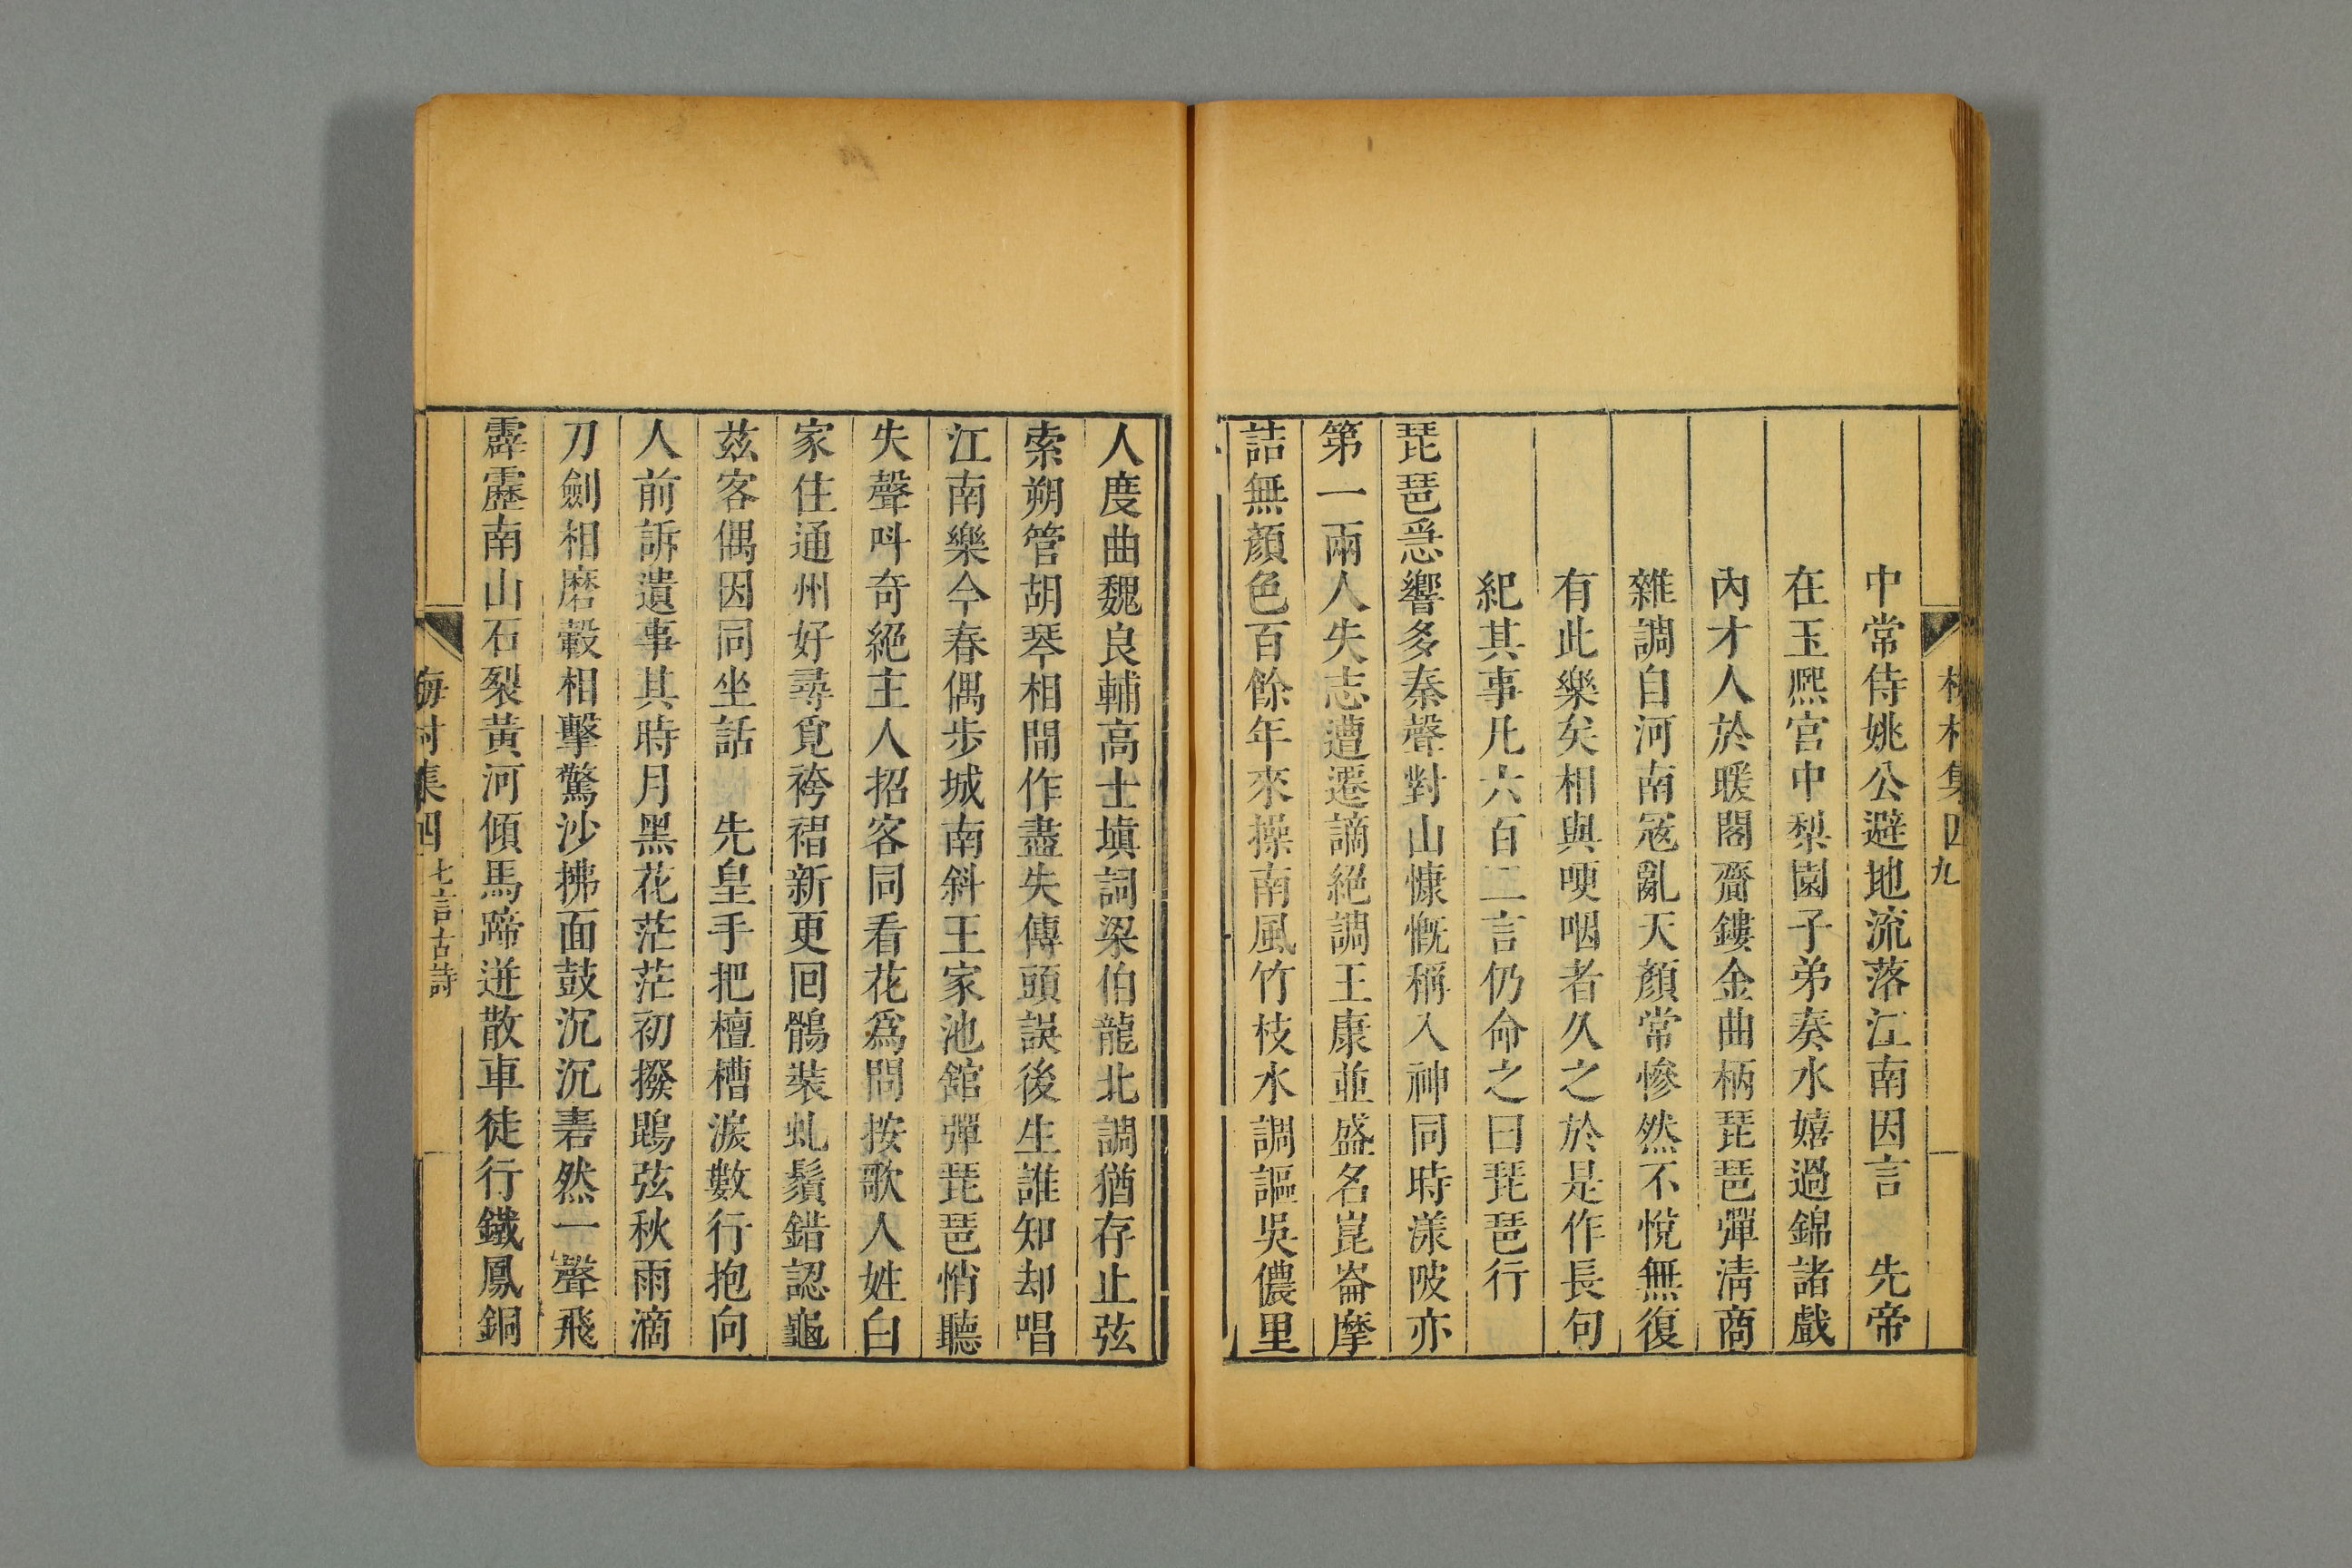 梅村集四 九
中常侍姚公避地流落江南因言 先帝
在玉熈宮中梨園子弟奏水嬉過錦諸戲
內才人於暖閣齎鏤金曲柄琵琶彈淸商
雜調自河南寇亂天顏常慘然不悅無復
有此樂矣相與哽咽者久之於是作長句
紀其事凡六百二言仍命之曰琵琶行
琵琶急響多秦聲對山慷慨稱入神同時渼陂亦
第一兩人失志遭遷謫絕調王康並盛名崑崙摩
詰無顏色百餘年來操南風竹枝水調謳吳儂里
人度曲魏良輔高士塡詞梁伯龍北調猶存止弦
索朔管胡琴相間作盡失傳頭誤後生誰知却唱
江南樂今春偶步城南斜王家池館彈琵琶悄聽
失聲呌奇絕主人招客同看花爲問按歌人姓白
家住通州好尋覓袴褶新更回鶻裝虬鬚錯認龜
茲客偶因同坐話 先皇手把檀槽淚數行抱向
人前訴遺事其時月黑花茫茫初撥鵾弦秋雨滴
刀劍相磨轂相擊驚沙拂面鼓沉沉砉然一聲飛
霹靂南山石裂黃河傾馬蹄迸散車徒行鐵鳳銅
梅村集四 七言古詩